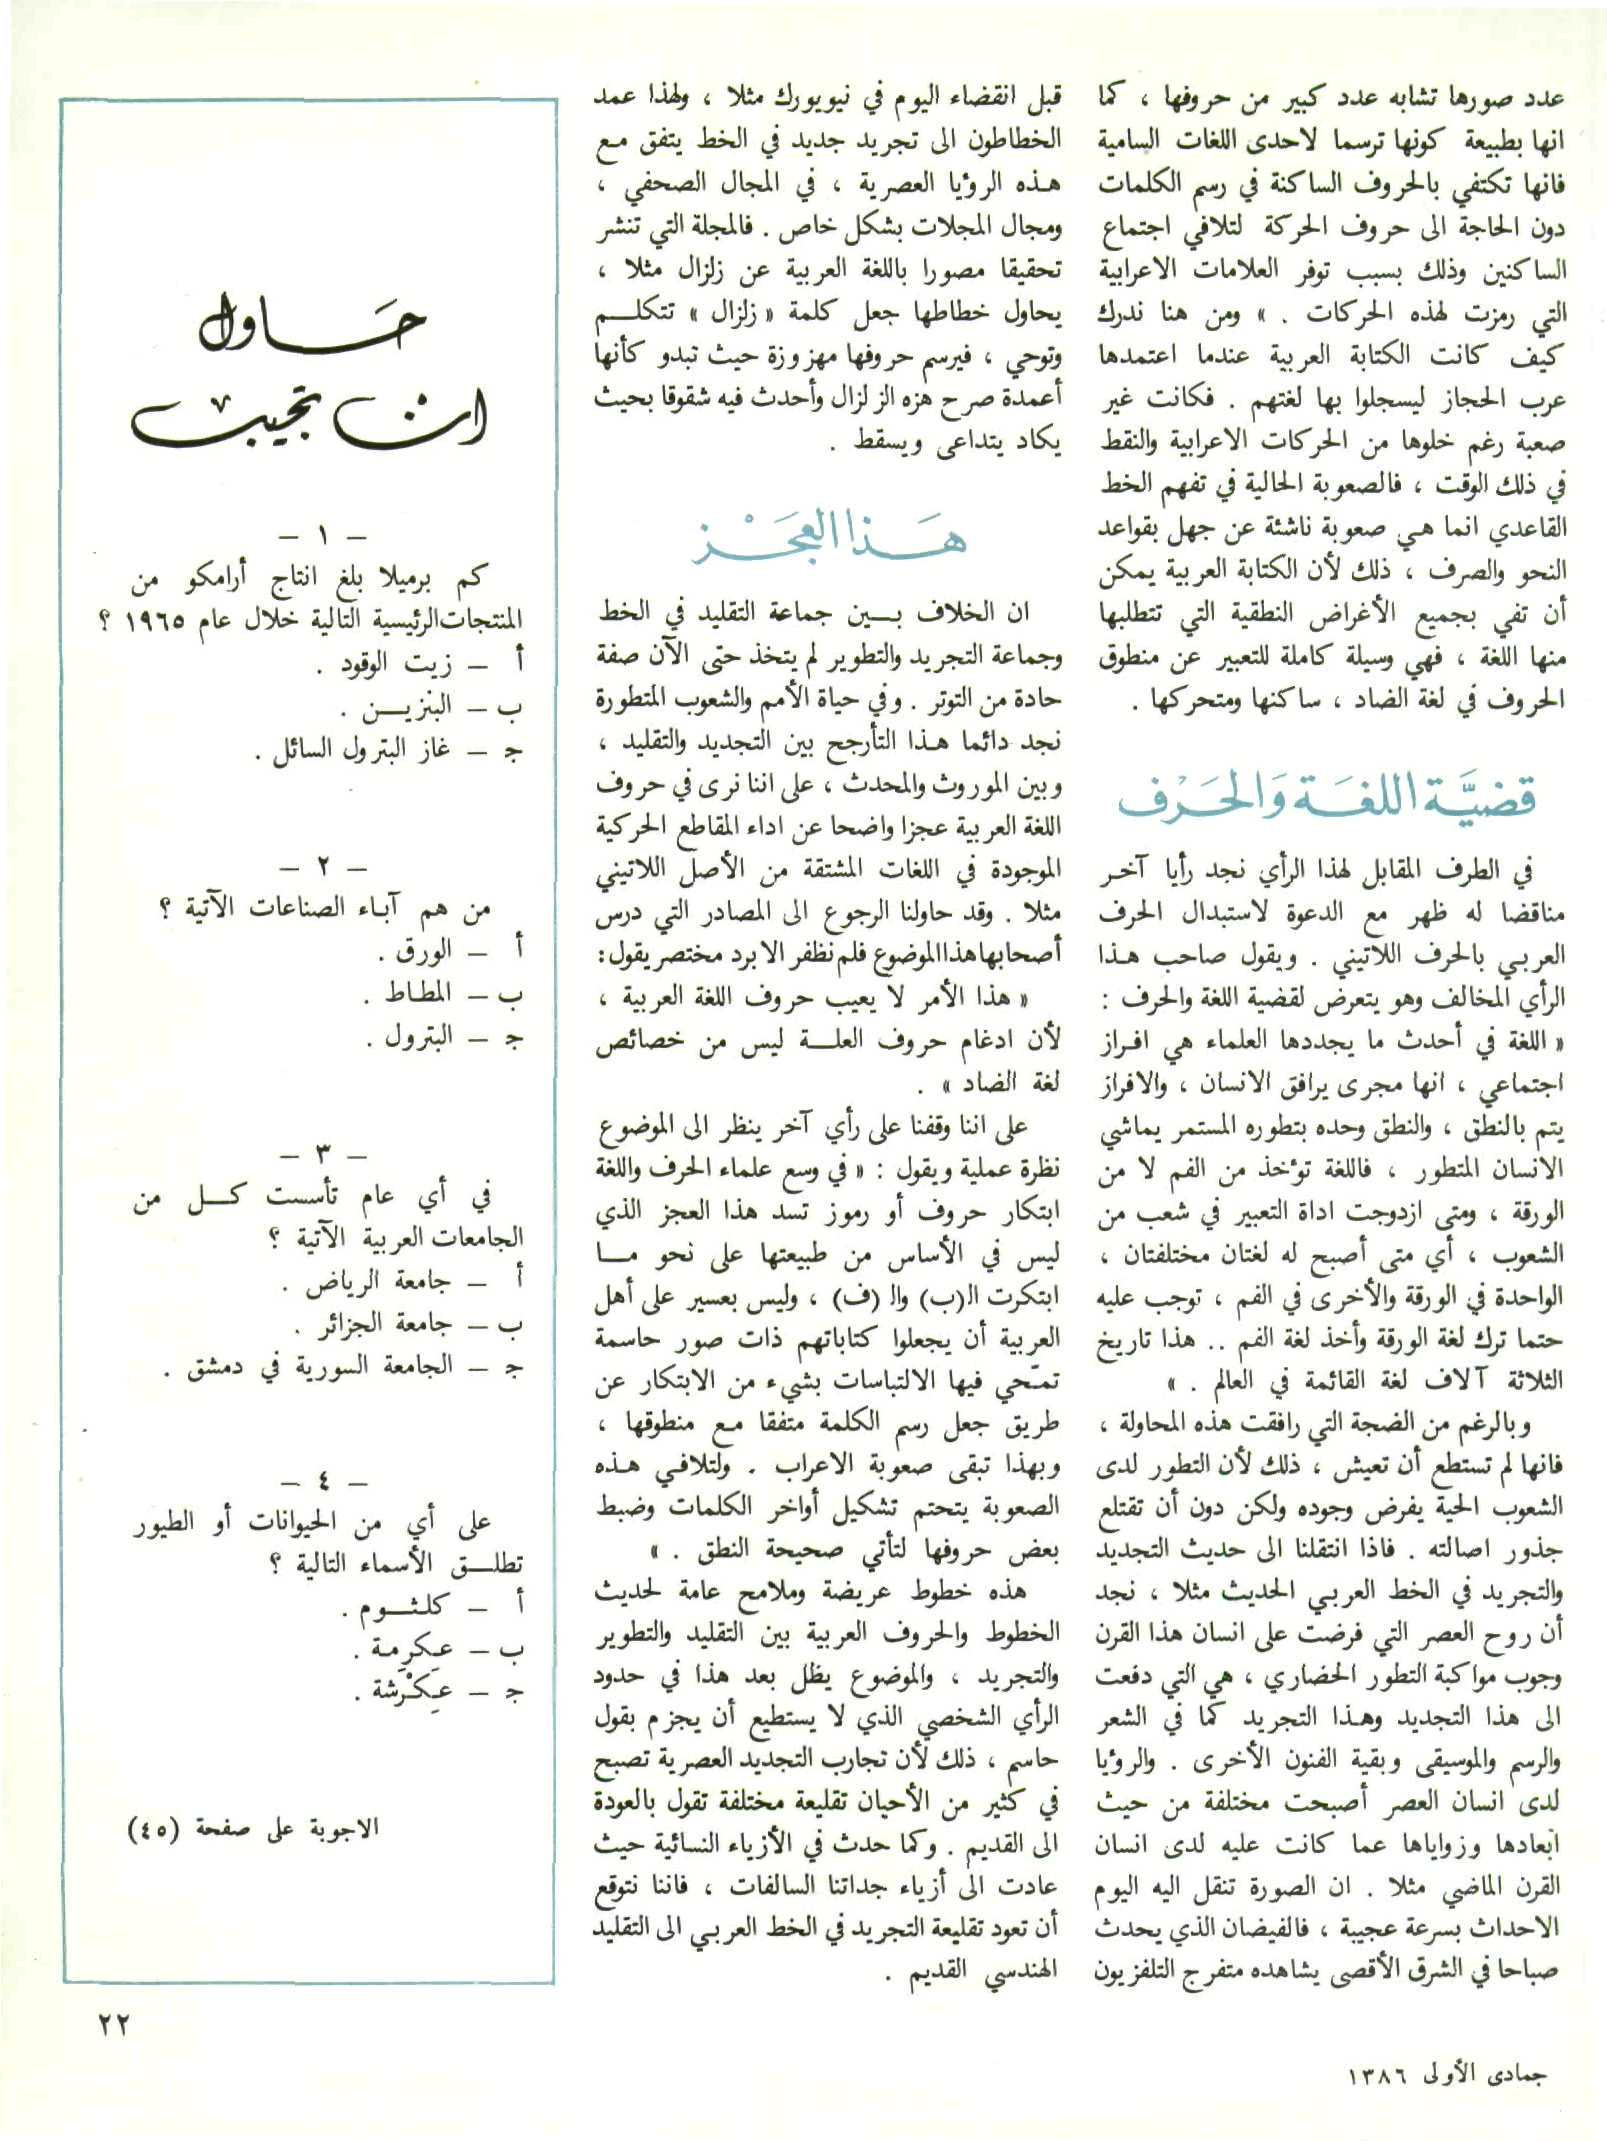 عدد صورها تشابه عدد كبير من حروفها ، كما
انها بطبيعة كونها ترسما لاحدى اللغات السامية
فانها تكتفي بالحروف الساكنة في رسم الكلمات
دون الحاجة الى حروف الحركة لتلافي اجتماع
الساكنين وذلك بسبب توفر العلامات الاعرابية
التي رمزت لهذه الحركات . » ومن هنا ندرك
كيف كانت الكتابة العربية عندما اعتمدها
عرب الحجاز ليسجلوا بها لغتهم . فكانت غير
صعبة رغم خلوها من الحركات الاعرابية والنقط
في ذلك الوقت ، فالصعوبة الحالية في تفهم الخط
القاعدي انما هي صعوبة ناشئة عن جهل بقواعد
النحو والصرف ، ذلك لأن الكتابة العربية يمكن
أن تفي بجميع الأغراض النطقية التي تتطلبها
منها اللغة ، فهي وسيلة كاملة للتعبير عن منطوق
الحروف في لغة الضاد ، ساكنها ومتحركها .
قضيَّة اللغَة وَالحَرْف
في الطرف المقابل لهذا الرأي نجد رأيا آخر
مناقضا له ظهر مع الدعوة لاستبدال الحرف
العربي بالحرف اللاتيني . ويقول صاحب هذا
الرأي المخالف وهو يتعرض لقضية اللغة والحرف :
« اللغة في أحدث ما يجددها العلماء هي افراز
اجتماعي ، انها مجرى يرافق الانسان ، والافراز
يتم بالنطق ، والنطق وحده بتطوره المستمر يماشي
الانسان المتطور ، فاللغة تؤخذ من الفم لا من
الورقة ، ومتى ازدوجت اداة التعبير في شعب من
الشعوب ، أي متى أصبح له لغتان مختلفتان ،
الواحدة في الورقة والأخرى في الفم ، توجب عليه
حتما ترك لغة الورقة وأخذ لغة الفم .. هذا تاريخ
الثلاثة آلاف لغة القائمة في العالم . »
وبالرغم من الضجة التي رافقت هذه المحاولة ،
فانها لم تستطع أن تعيش ، ذلك لأن التطور لدى
الشعوب الحية يفرض وجوده ولكن دون أن تقتلع
جذور اصالته . فاذا انتقلنا الى حديث التجديد
والتجريد في الخط العربي الحديث مثلا ، نجد
أن روح العصر التي فرضت على انسان هذا القرن
وجوب مواكبة التطور الحضاري ، هي التي دفعت
الى هذا التجديد وهذا التجريد كما في الشعر
والرسم والموسيقى وبقية الفنون الأخرى . والرؤيا
لدى انسان العصر أصبحت مختلفة من حيث
أبعادها وزواياها عما كانت عليه لدى انسان
القرن الماضي مثلا . ان الصورة تنقل اليه اليوم
الاحداث بسرعة عجيبة ، فالفيضان الذي يحدث
صباحا في الشرق الأقصى يشاهده متفرج التلفزيون
قبل انقضاء اليوم في نيويورك مثلا ، ولهذا عمد
الخطاطون الى تجريد جديد في الخط يتفق مع
هذه الرؤيا العصرية ، في المجال الصحفي ،
ومجال المجلات بشكل خاص . فالمجلة التي تنشر
تحقيقا مصورا باللغة العربية عن زلزال مثلا ،
يحاول خطاطها جعل كلمة « زلزال » تتكلم
وتوحي ، فيرسم حروفها مهزوزة حيث تبدو كأنها
أعمدة صرح هزه الزلزال وأحدث فيه شقوقا بحيث
يكاد يتداعى ويسقط .
هَذا العَجْز
ان الخلاف بين جماعة التقليد في الخط
وجماعة التجريد والتطوير لم يتخذ حتى الآن صفة
حادة من التوتر . وفي حياة الأمم والشعوب المتطورة
نجد دائما هذا التأرجح بين التجديد والتقليد ،
وبين الموروث والمحدث ، على اننا نرى في حروف
اللغة العربية عجزا واضحا عن اداء المقاطع الحركية
الموجودة في اللغات المشتقة من الأصل اللاتيني
مثلا . وقد حاولنا الرجوع الى المصادر التي درس
أصحابها هذا الموضوع فلم نظفر الا برد مختصر يقول :
« هذا الأمر لا يعيب حروف اللغة العربية ،
لأن ادغام حروف العلة ليس من خصائص
لغة الضاد » .
على اننا وقفنا على رأي آخر ينظر الى الموضوع
نظرة عملية ويقول : « في وسع علماء الحرف واللغة
ابتكار حروف أو رموز تسد هذا العجز الذي
ليس في الأساس من طبيعتها على نحو ما
ابتكرت ال(ب) وال (ف) ، وليس بعسير على أهل
العربية أن يجعلوا كتاباتهم ذات صور حاسمة
تمّحي فيها الالتباسات بشيء من الابتكار عن
طريق جعل رسم الكلمة متفقا مع منطوقها ،
وبهذا تبقى صعوبة الاعراب . ولتلافي هذه
الصعوبة يتحتم تشكيل أواخر الكلمات وضبط
بعض حروفها لتأتي صحيحة النطق . »
هذه خطوط عريضة وملامح عامة لحديث
الخطوط والحروف العربية بين التقليد والتطوير
والتجريد ، والموضوع يظل بعد هذا في حدود
الرأي الشخصي الذي لا يستطيع أن يجزم بقول
حاسم ، ذلك لأن تجارب التجديد العصرية تصبح
في كثير من الأحيان تقليعة مختلفة تقول بالعودة
الى القديم . وكما حدث في الأزياء النسائية حيث
عادت الى أزياء جداتنا السالفات ، فاننا نتوقع
أن تعود تقليعة التجريد في الخط العربي الى التقليد
الهندسي القديم .
حَاول
ان تجيب
– ١ –
كم برميلا بلغ انتاج أرامكو من
المنتجات الرئيسية التالية خلال عام ١٩٦٥ ؟
أ – زيت الوقود .
ب – البنزين .
ج – غاز البترول السائل .
– ٢ –
من هم آباء الصناعات الآتية ؟
أ – الورق .
ب – المطاط .
ج – البترول .
– ٣ –
في أي عام تأسست كل من
الجامعات العربية الآتية ؟
أ – جامعة الرياض .
ب – جامعة الجزائر .
ج – الجامعة السورية في دمشق .
– ٤ –
على أي من الحيوانات أو الطيور
تطلق الأسماء التالية ؟
أ – كلثوم .
ب – عكرِمة .
ج – عِكْرشة .
الاجوبة على صفحة (٤٥)
٢٢
جمادى الأولى ١٣٨٦